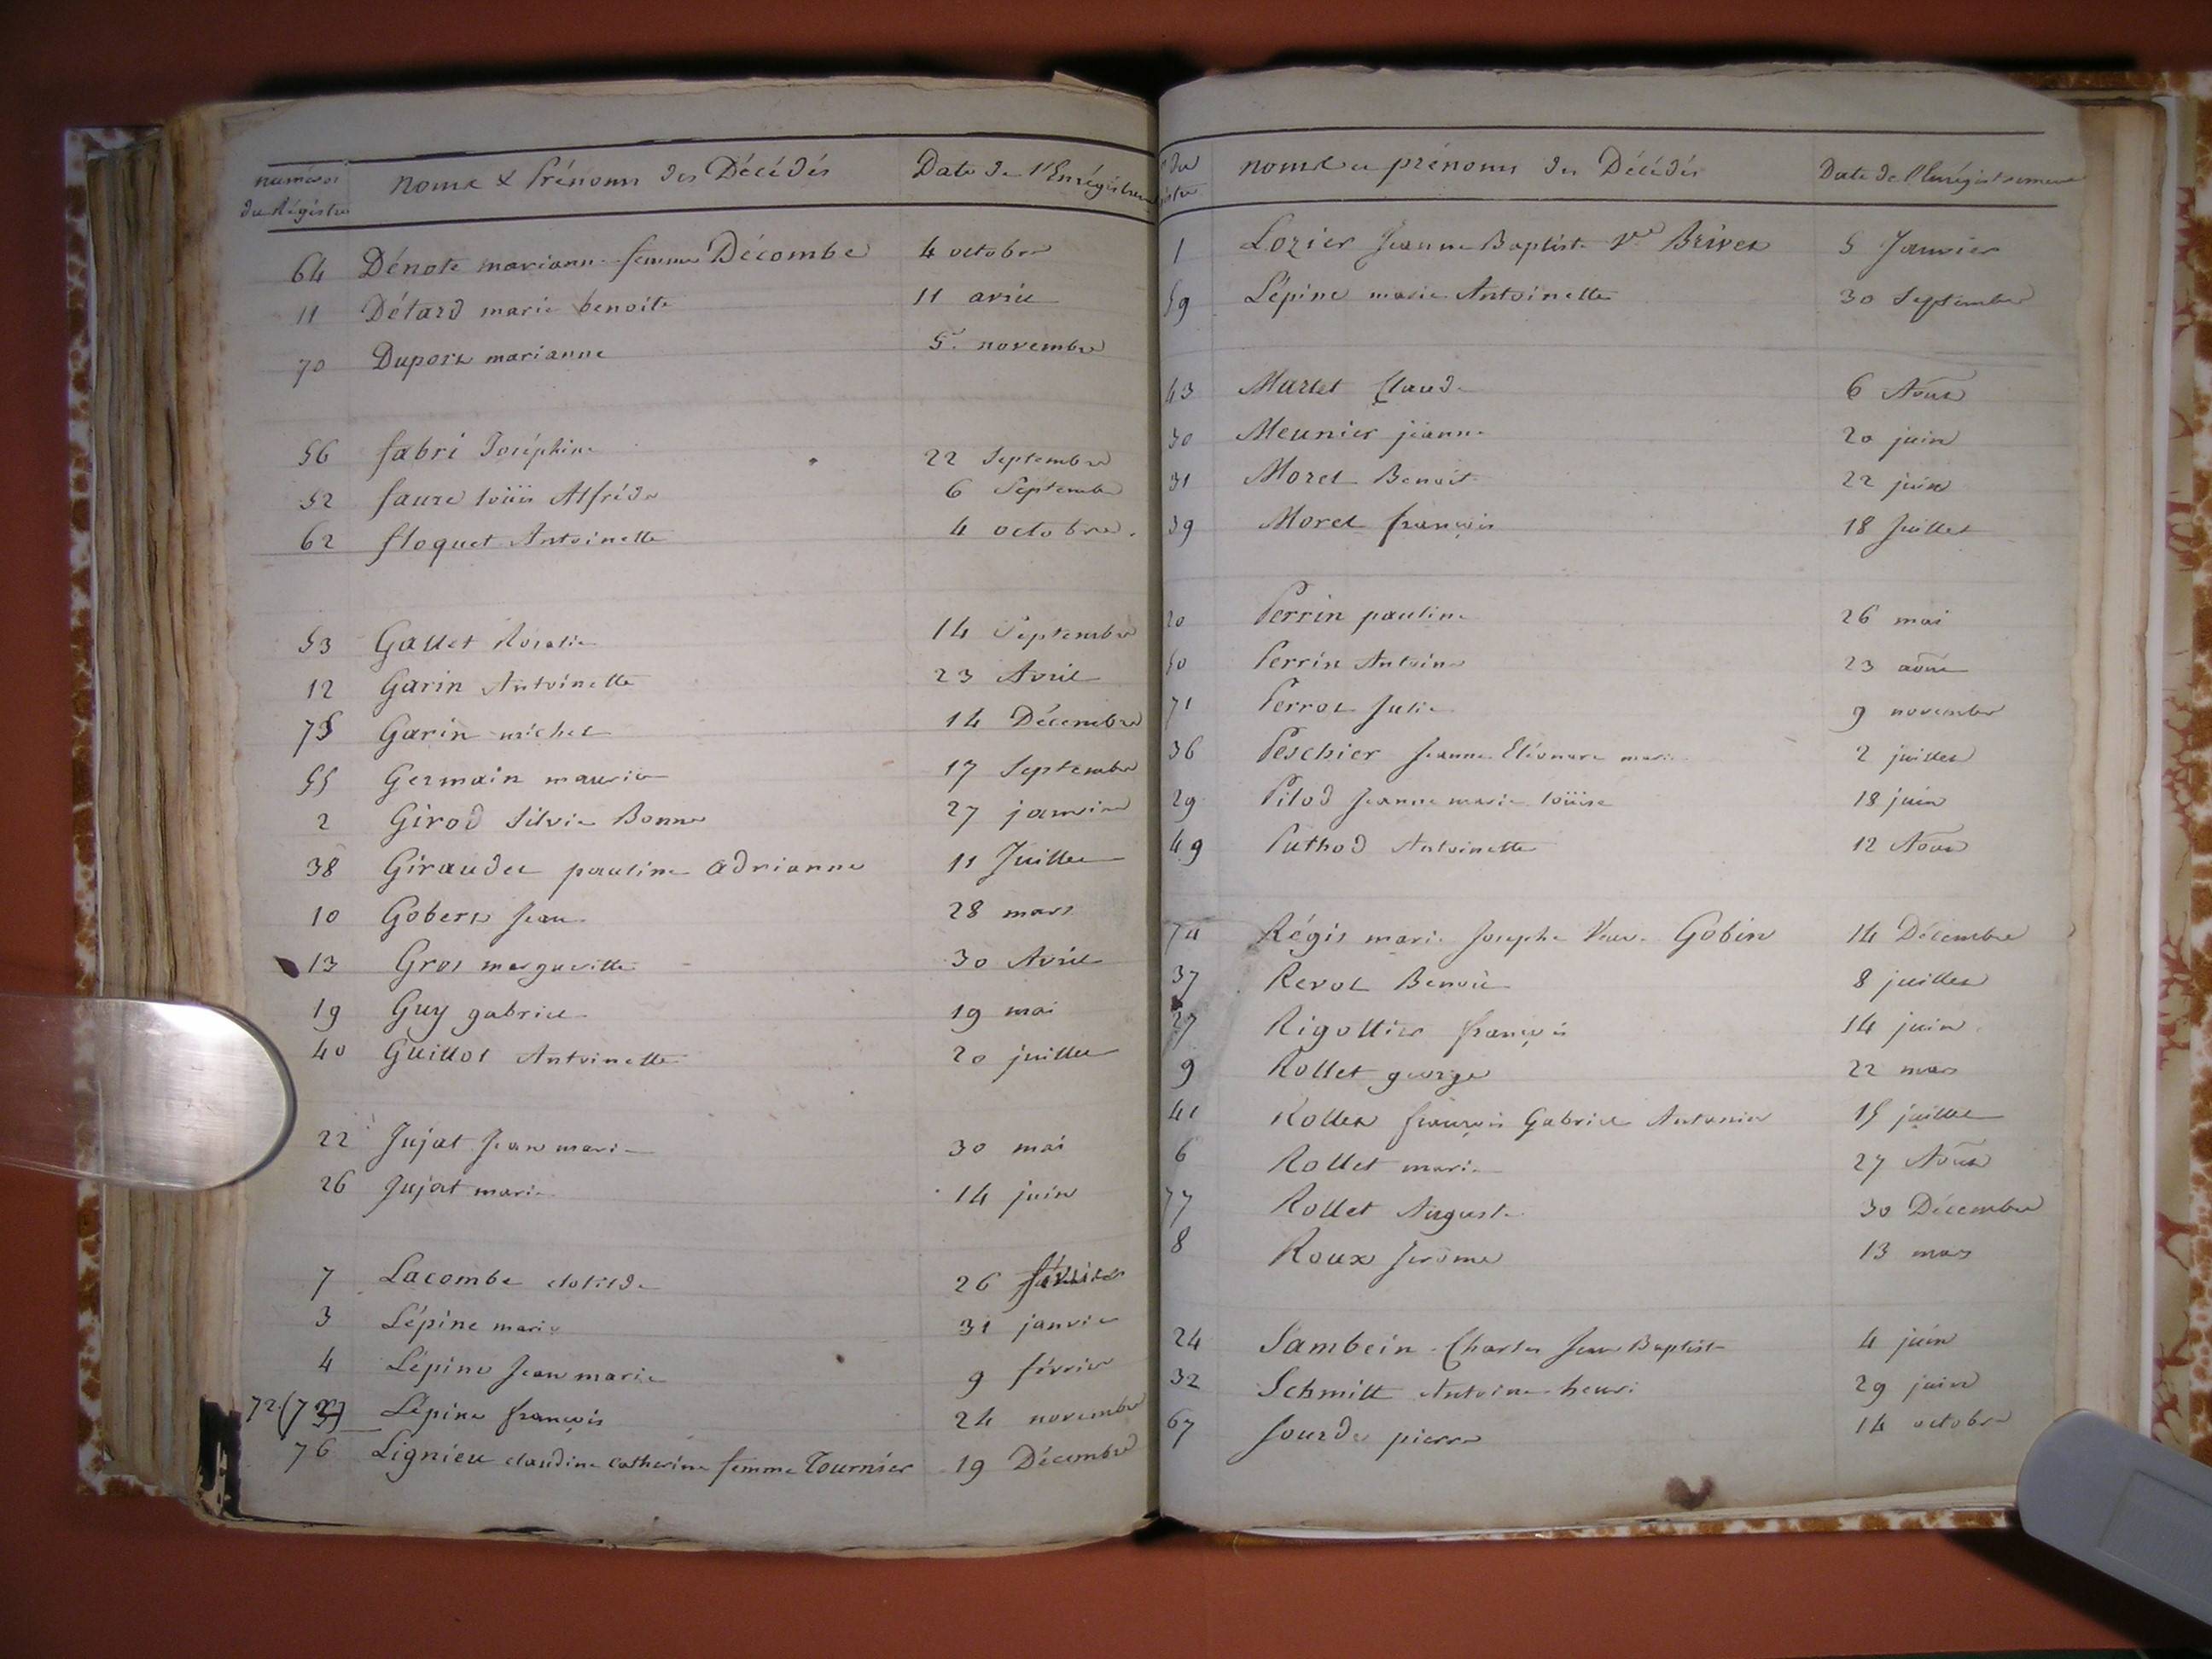 numéros du Régistre
noms & Prénoms des Décédés
Date de l'Enrégistrem
64 Dénote marianne femme Décombe 4 octobre
11 Détard marie benoite 11 avril
70 Duport marianne 5 novembre
56 fabri Joséphine 22 Septembre
52 faure loüis Alfréde 6 Septembre
62 floquet Antoinette 4 octobre.
53 Gallet Rosalie 14 Septembre
12 Garin Antoinette 23 Avril
75 Garin michel 14 Décembre
55 Germain maurice 17 Septembre
2 Girod Silvie Bonne 27 janvier
38 Giraudet pauline adrianne 11 Juillet
10 Gobert Jean 28 mars
13 Gros margueritte 30 Avril
19 Guy gabriel 19 mai
40 Guillot Antoinette 20 juillet
22 Jujat Jean marie 30 mai
26 Jujat marie 14 juin
7 Lacombe clotilde 26 février
3 Lépine marie 31 janvier
4 Lépine Jean marie 9 février
72 Lépine françois 24 novembre
76 Lignieu claudine catherine femme Tournier 19 Décembre
du istre
noms et prénoms des Décédés
Date de l'Enrégistrement
1 Lozier Jeanne Baptiste Ve Brivet 5 Janvier
59 Lépine marie Antoinette 30 Septembre
43 Martet Claude 6 Août
30 Meunier jeanne 20 juin
31 Morel Benoit 22 juin
39 Morel françois 18 Juillet
20 Perrin pauline 26 mai
50 Perrin Antoine 23 août
71 Perrot Julie 9 novembre
36 Peschier Jeanne Eléonore marie 2 juillet
29 Pilod Jeanne marie loüise 18 juin
49 Puthod Antoinette 12 Août
74 Régis marie Josephe Veuve Gobin 14 Décembre
37 Revol Benoit 8 juillet
27 Rigottier françois 14 juin
9 Rollet george 22 mars
41 Rollet françois Gabriel Antonin 15 juillet
6 Rollet marie 27 Août
77 Rollet Auguste 30 Décembre
8 Roux Jerôme 13 mars
24 Sambein Charles Jean Baptiste 4 juin
32 Schmitt Antoine henri 29 juin
67 Sourde pierre 14 octobre